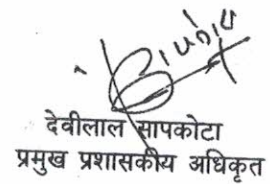 देवीलाल सापकोटा
प्रमुख प्रशासकीय अधिकृत